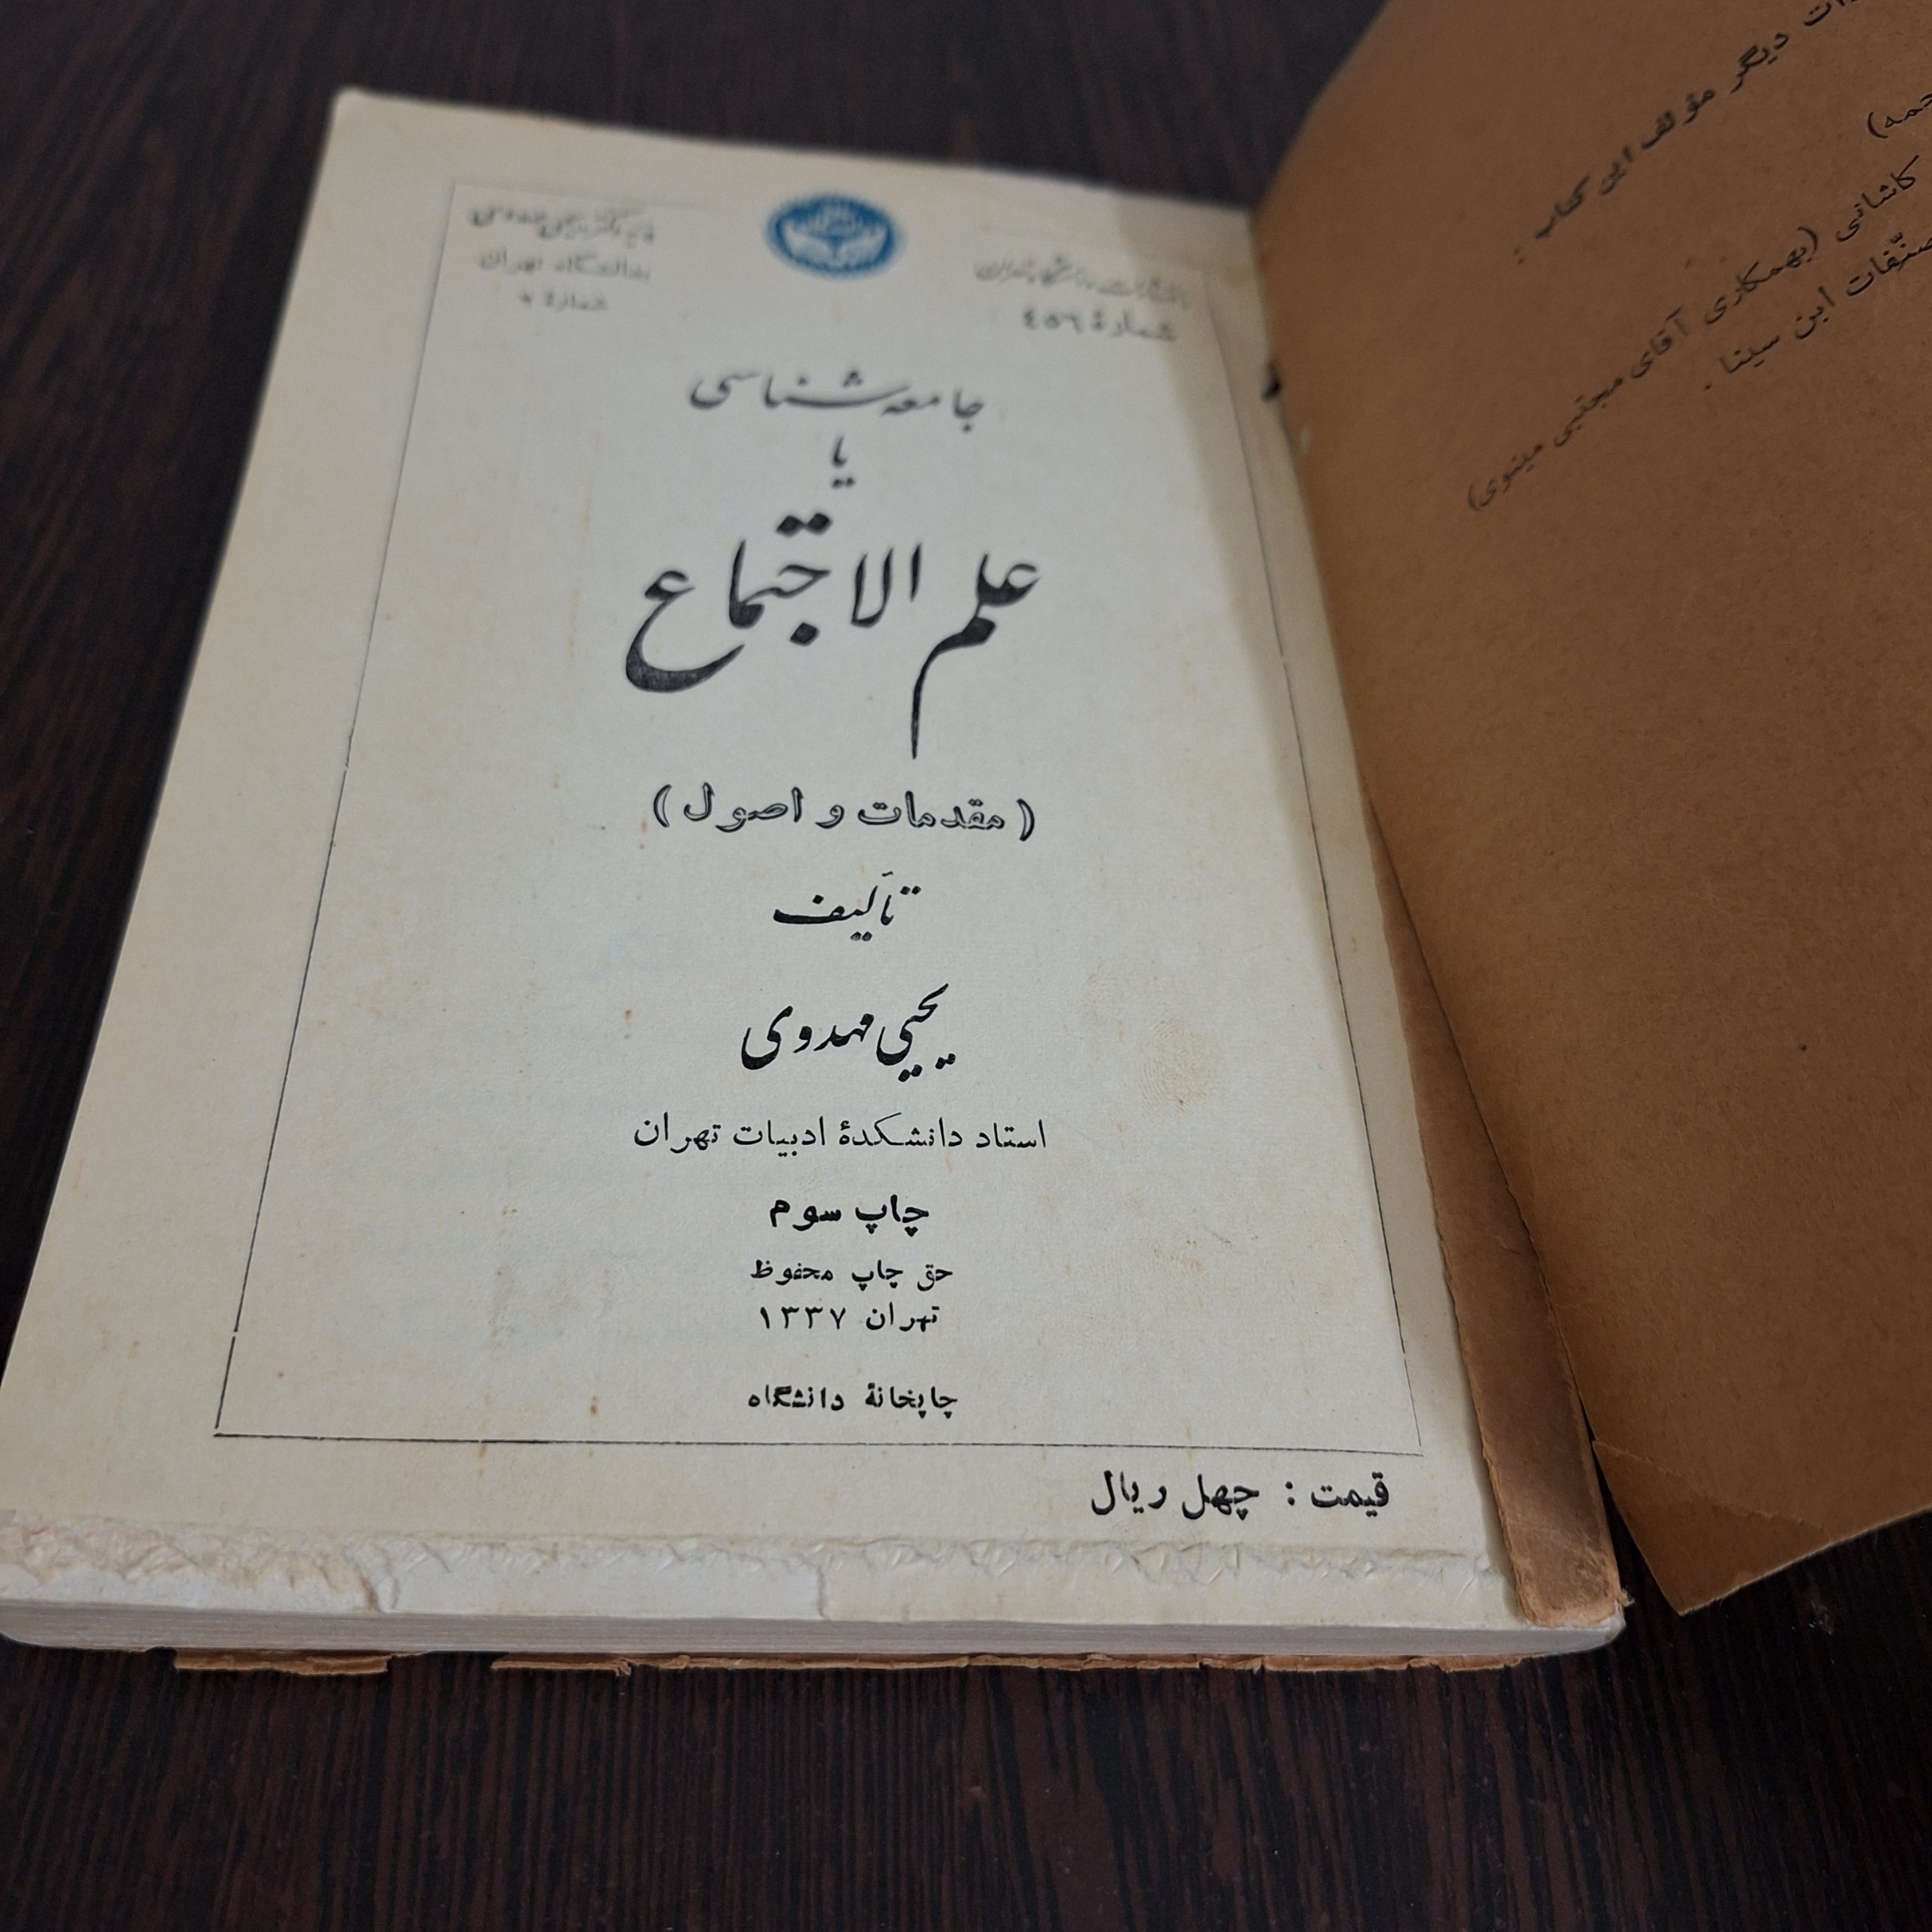 انتشارات دانشگاه تهران
شمارهٔ ٤٥٦
هدیه دکتر یحیی مهدوی
بدانشگاه تهران
شمارهٔ
جامعه شناسی
یا
علم الاجتماع
(مقدمات و اصول)
تألیف
یحیی مهدوی
استاد دانشکدهٔ ادبیات تهران
چاپ سوم
حق چاپ محفوظ
تهران ۱۳۳۷
چاپخانهٔ دانشگاه
قیمت : چهل ریال
دیگر مؤلف این کتاب :
کاشانی (بهمکاری آقای مجتبی مینوی)
ابن سینا .